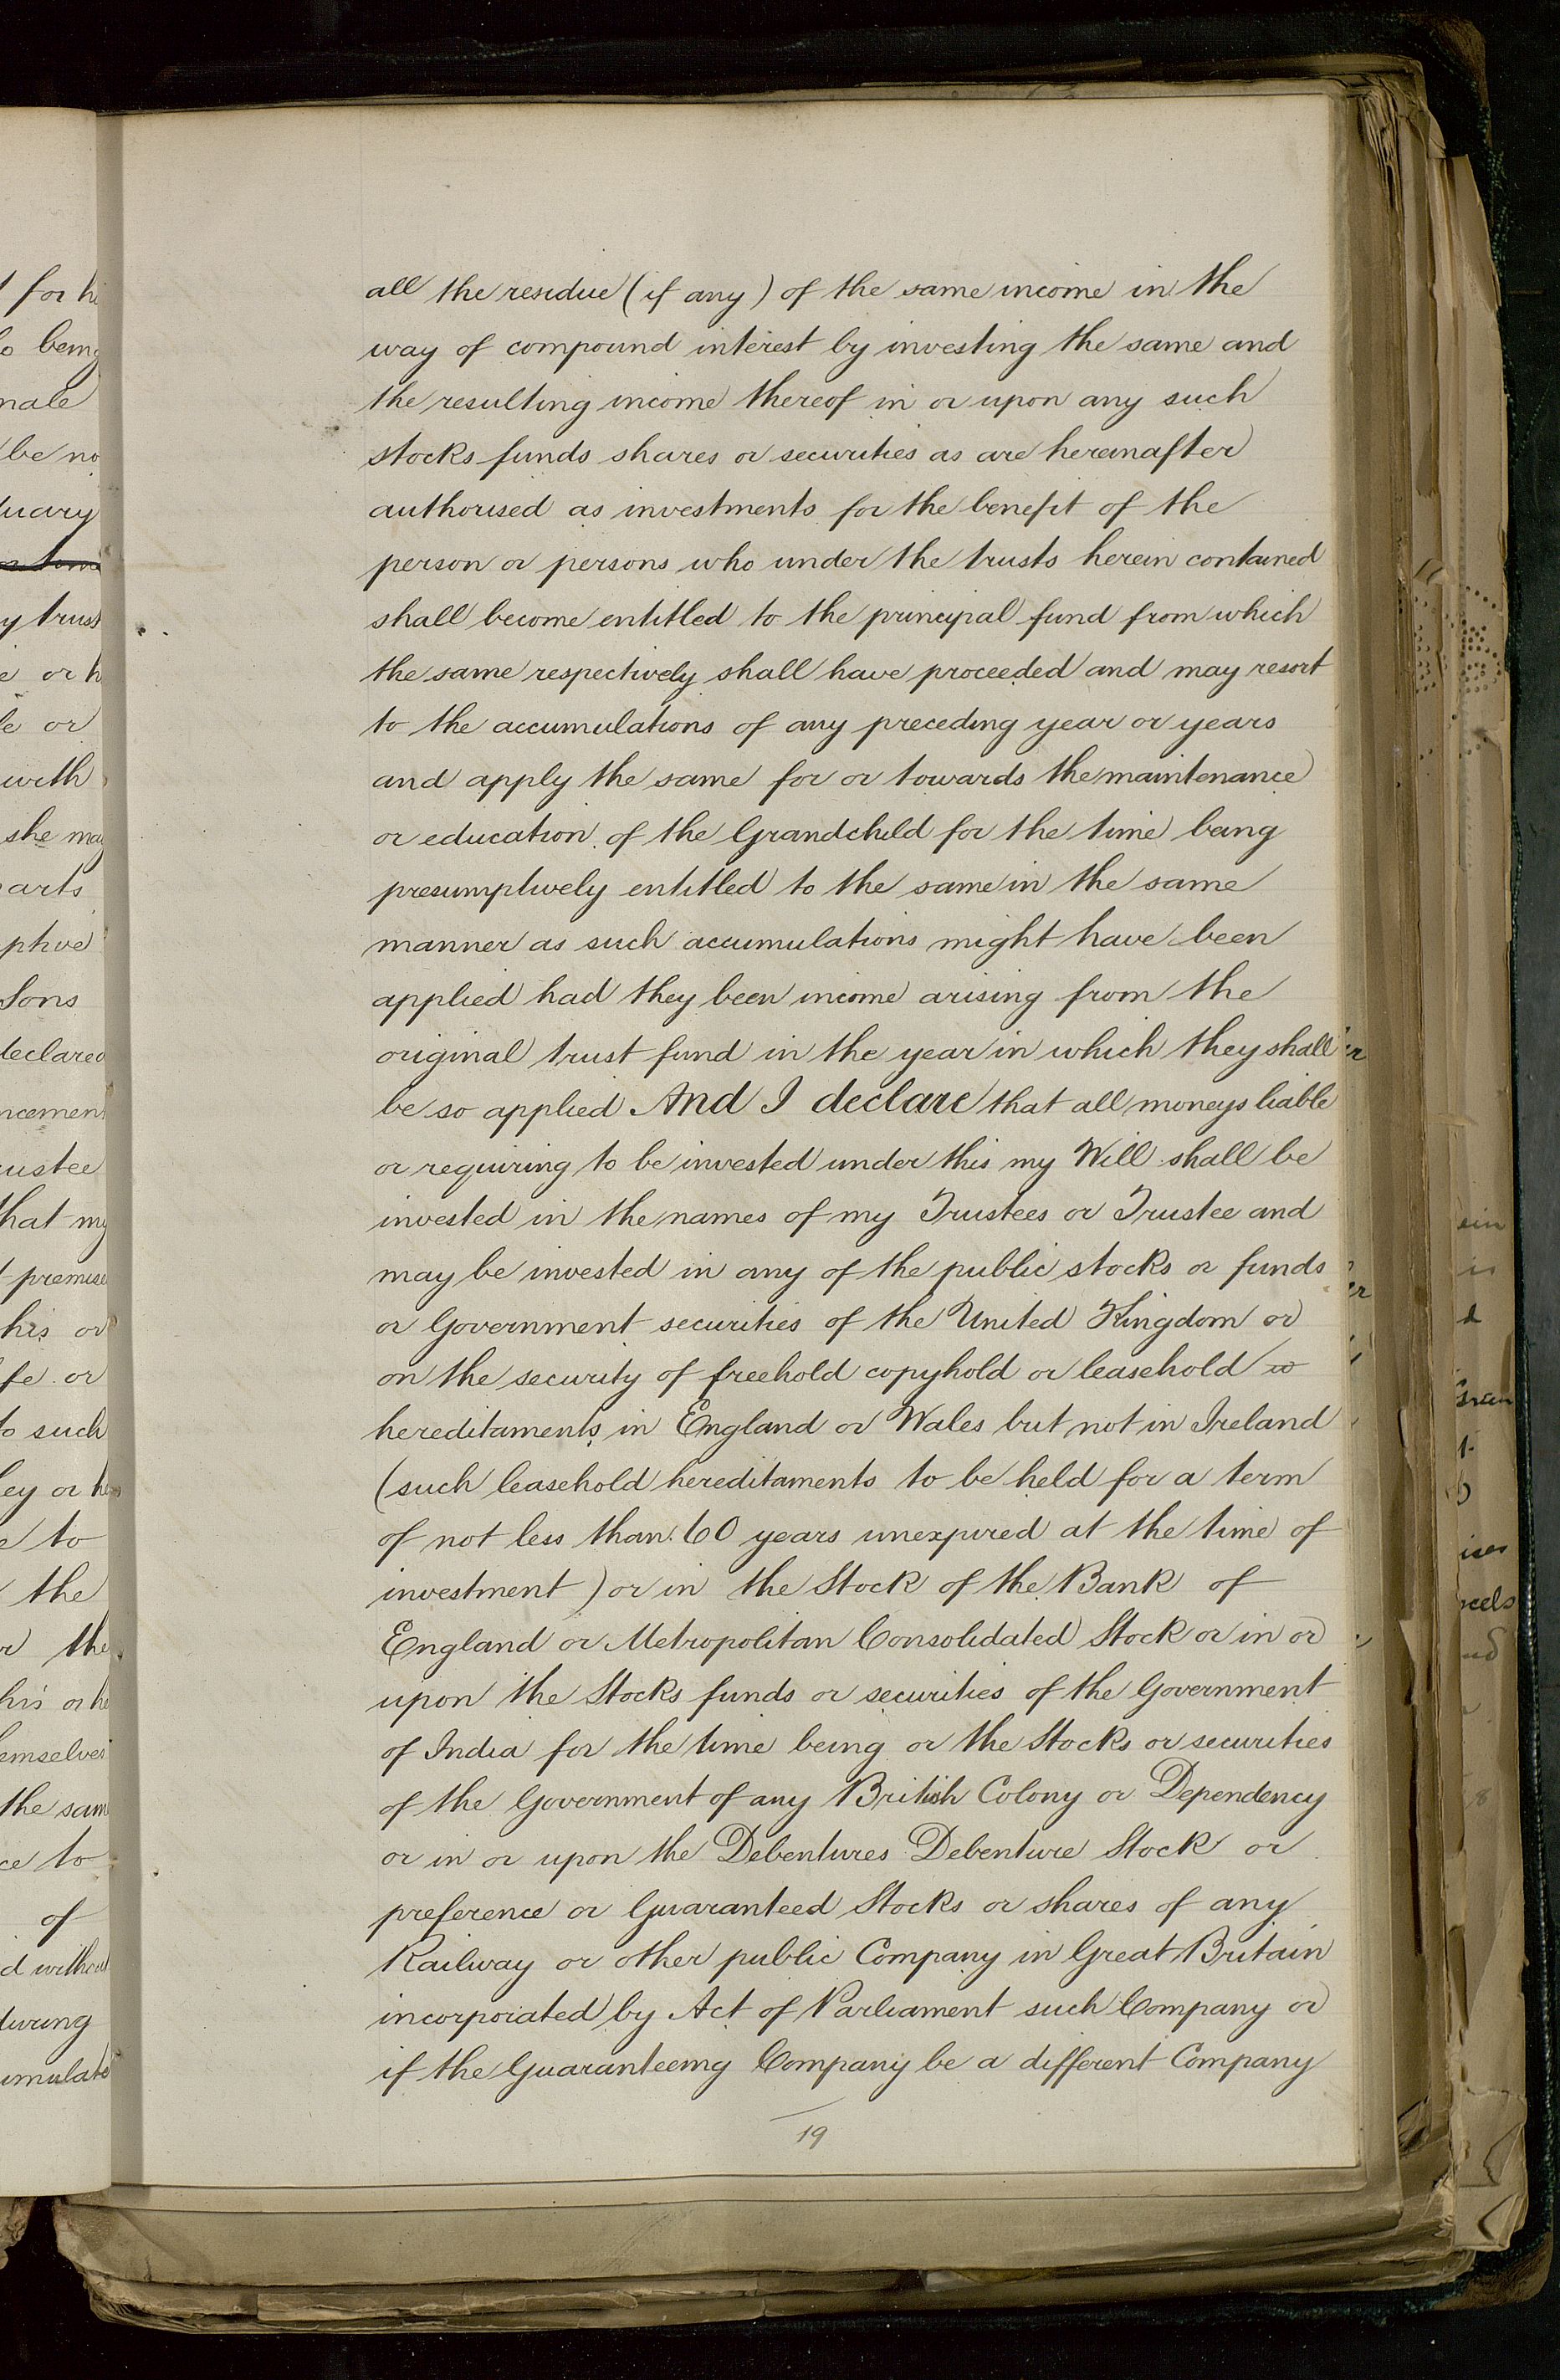 all the residue (if any) of the same income in the
way of compound interest by investing the same and
the resulting income thereof in or upon any such
stocks funds shares or securities as are hereinafter
authorised as investments for the benefit of the
person or persons who under the trusts herein contained
shall become entitled to the principal fund from which
the same respectively shall have proceeded and may resort
to the accumulations of any preceding year or years
and apply the same for or towards the maintenance
or education of the Grandchild for the time being
presumptively entitled to the same in the same
manner as such accumulations might have been
applied had they been income arising from the
original trust fund in the year in which they shall
be so applied And I declare that all moneys liable
or requiring to be invested under this my Will shall be
invested in the names of my Trustees or Trustee and
may be invested in any of the public stocks or funds
or Government securities of the United Kingdom or
on the security of freehold copyhold or leasehold
hereditaments in England or Wales but not in Ireland
(such leasehold hereditaments to be held for a term
of not less than 60 years unexpired at the time of
investment) or in the Stock of the Bank of
England or Metropolitan Consolidated Stock or in or
upon the Stocks funds or securities of the Government
of India for the time being or the Stocks or securities
of the Government of any British Colony or Dependency
or in or upon the Debentures Debenture Stock or
preference or Guaranteed Stocks or shares of any
Railway or other public Company in Great Britain
incorporated by Act of Parliament such Company or
if the Guaranteeing Company be a different Company
19